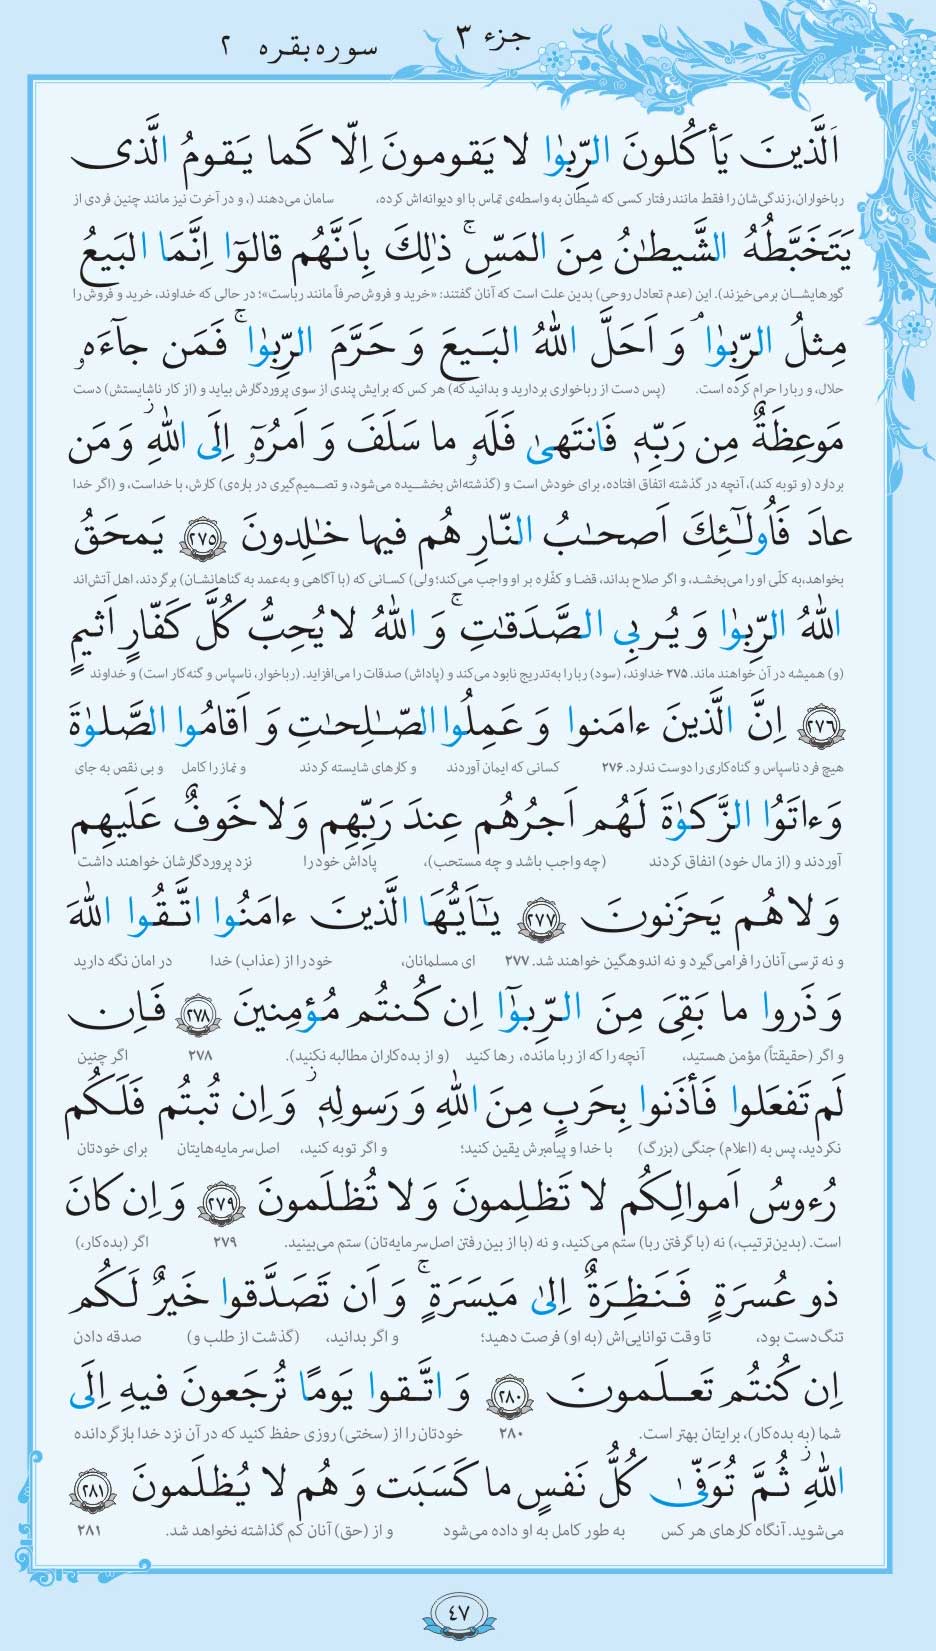 جزء ۳
سوره بقره ۲
اَلَّذینَ یَأکُلونَ الرِّبوٰا لا یَقومونَ اِلّا کَما یَقومُ الَّذی
رباخواران، زندگی‌شان را فقط مانند رفتار کسی که شیطان به واسطه‌ی تماس با او دیوانه‌اش کرده، سامان می‌دهند (، و در آخرت نیز مانند چنین فردی از
یَتَخَبَّطُهُ الشَّیطـٰنُ مِنَ المَسِّ ۚ ذٰلِكَ بِاَنَّهُم قالوٓا اِنَّمَا البَیعُ
گورهایشان برمی‌خیزند). این (عدم تعادل روحی) بدین علت است که آنان گفتند: «خرید و فروش صرفاً مانند رباست»؛ در حالی که خداوند، خرید و فروش را
مِثلُ الرِّبوٰا ۘ وَ اَحَلَّ اللّٰهُ البَـیعَ وَ حَرَّمَ الرِّبوٰا ۚ فَمَن جآءَهٗ
حلال، و ربا را حرام کرده است. (پس دست از رباخواری بردارید و بدانید که) هر کس که برایش پندی از سوی پروردگارش بیاید و (از کار ناشایستش) دست
مَوعِظَةٌ مِن رَبِّهٖ فَانتَهیٰ فَلَهٗ ما سَلَفَ وَ اَمرُهٗٓ اِلَی اللّٰهِ ۖ وَ مَن
بردارد (و توبه کند)، آنچه در گذشته اتفاق افتاده، برای خودش است و (گذشته‌اش بخشیده می‌شود، و تصمیم‌گیری در باره‌ی) کارش، با خداست، و (اگر خدا
عادَ فَاُولـٰٓئِكَ اَصحـٰبُ النّارِ هُم فیها خـٰلِدونَ ﴿۲۷۵﴾ یَمحَقُ
بخواهد، به کلّی او را می‌بخشد، و اگر صلاح بداند، قضا و کفّاره بر او واجب می‌کند؛ ولی) کسانی که (با آگاهی و به‌عمد به گناهانشان) برگردند، اهل آتش‌اند
اللّٰهُ الرِّبوٰا وَ یُربِی الصَّدَقـٰتِ ۚ وَ اللّٰهُ لا یُحِبُّ کُلَّ کَفّارٍ اَثیمٍ
(و) همیشه در آن خواهند ماند. ۲۷۵ خداوند، (سود) ربا را به‌تدریج نابود می‌کند و (پاداش) صدقات را می‌افزاید. (رباخوار، ناسپاس و گنه‌کار است) و خداوند
﴿۲۷۶﴾ اِنَّ الَّذینَ ءامَنوا وَ عَمِلُوا الصّـٰلِحـٰتِ وَ اَقامُوا الصَّلوٰةَ
هیچ فرد ناسپاس و گناه‌کاری را دوست ندارد. ۲۷۶ کسانی که ایمان آوردند و کارهای شایسته کردند و نماز را کامل و بی نقص به جای
وَ ءاتَوُا الزَّکوٰةَ لَهُم اَجرُهُم عِندَ رَبِّهِم وَ لا خَوفٌ عَلَیهِم
آوردند و (از مال خود) انفاق کردند (چه واجب باشد و چه مستحب)، پاداش خود را نزد پروردگارشان خواهند داشت
وَ لا هُم یَحزَنونَ ﴿۲۷۷﴾ یـٰٓاَیُّهَا الَّذینَ ءامَنُوا اتَّقُوا اللّٰهَ
و نه ترسی آنان را فرا می‌گیرد و نه اندوهگین خواهند شد. ۲۷۷ ای مسلمانان، خود را از (عذاب) خدا در امان نگه دارید
وَ ذَروا ما بَقِیَ مِنَ الرِّبوٰٓا اِن کُنتُم مُؤمِنینَ ﴿۲۷۸﴾ فَاِن
و اگر (حقیقتاً) مؤمن هستید، آنچه را که از ربا مانده، رها کنید (و از بده‌کاران مطالبه نکنید). ۲۷۸ اگر چنین
لَم تَفعَلوا فَأذَنوا بِحَربٍ مِنَ اللّٰهِ وَ رَسولِهٖ ۖ وَ اِن تُبتُم فَلَکُم
نکردید، پس به (اعلام) جنگی (بزرگ) با خدا و پیامبرش یقین کنید؛ و اگر توبه کنید، اصل سرمایه‌هایتان برای خودتان
رُءوسُ اَموالِکُم لا تَظلِمونَ وَ لا تُظلَمونَ ﴿۲۷۹﴾ وَ اِن کانَ
است. (بدین‌ترتیب،) نه (با گرفتن ربا) ستم می‌کنید، و نه (با از بین رفتن اصل سرمایه‌تان) ستم می‌بینید. ۲۷۹ اگر (بده‌کار،)
ذو عُسرَةٍ فَنَظِرَةٌ اِلیٰ مَیسَرَةٍ ۚ وَ اَن تَصَدَّقوا خَیرٌ لَکُم
تنگ‌دست بود، تا وقت توانایی‌اش (به او) فرصت دهید؛ و اگر بدانید، (گذشت از طلب و) صدقه دادن
اِن کُنتُم تَعلَمونَ ﴿۲۸۰﴾ وَ اتَّقوا یَومًا تُرجَعونَ فیهِ اِلَی
شما (به بده‌کار)، برایتان بهتر است. ۲۸۰ خودتان را از (سختی) روزی حفظ کنید که در آن نزد خدا بازگردانده
اللّٰهِ ۖ ثُمَّ تُوَفّیٰ کُلُّ نَفسٍ ما کَسَبَت وَ هُم لا یُظلَمونَ ﴿۲۸۱﴾
می‌شوید. آنگاه کارهای هر کس به طور کامل به او داده می‌شود و از (حق) آنان کم گذاشته نخواهد شد. ۲۸۱
۴۷